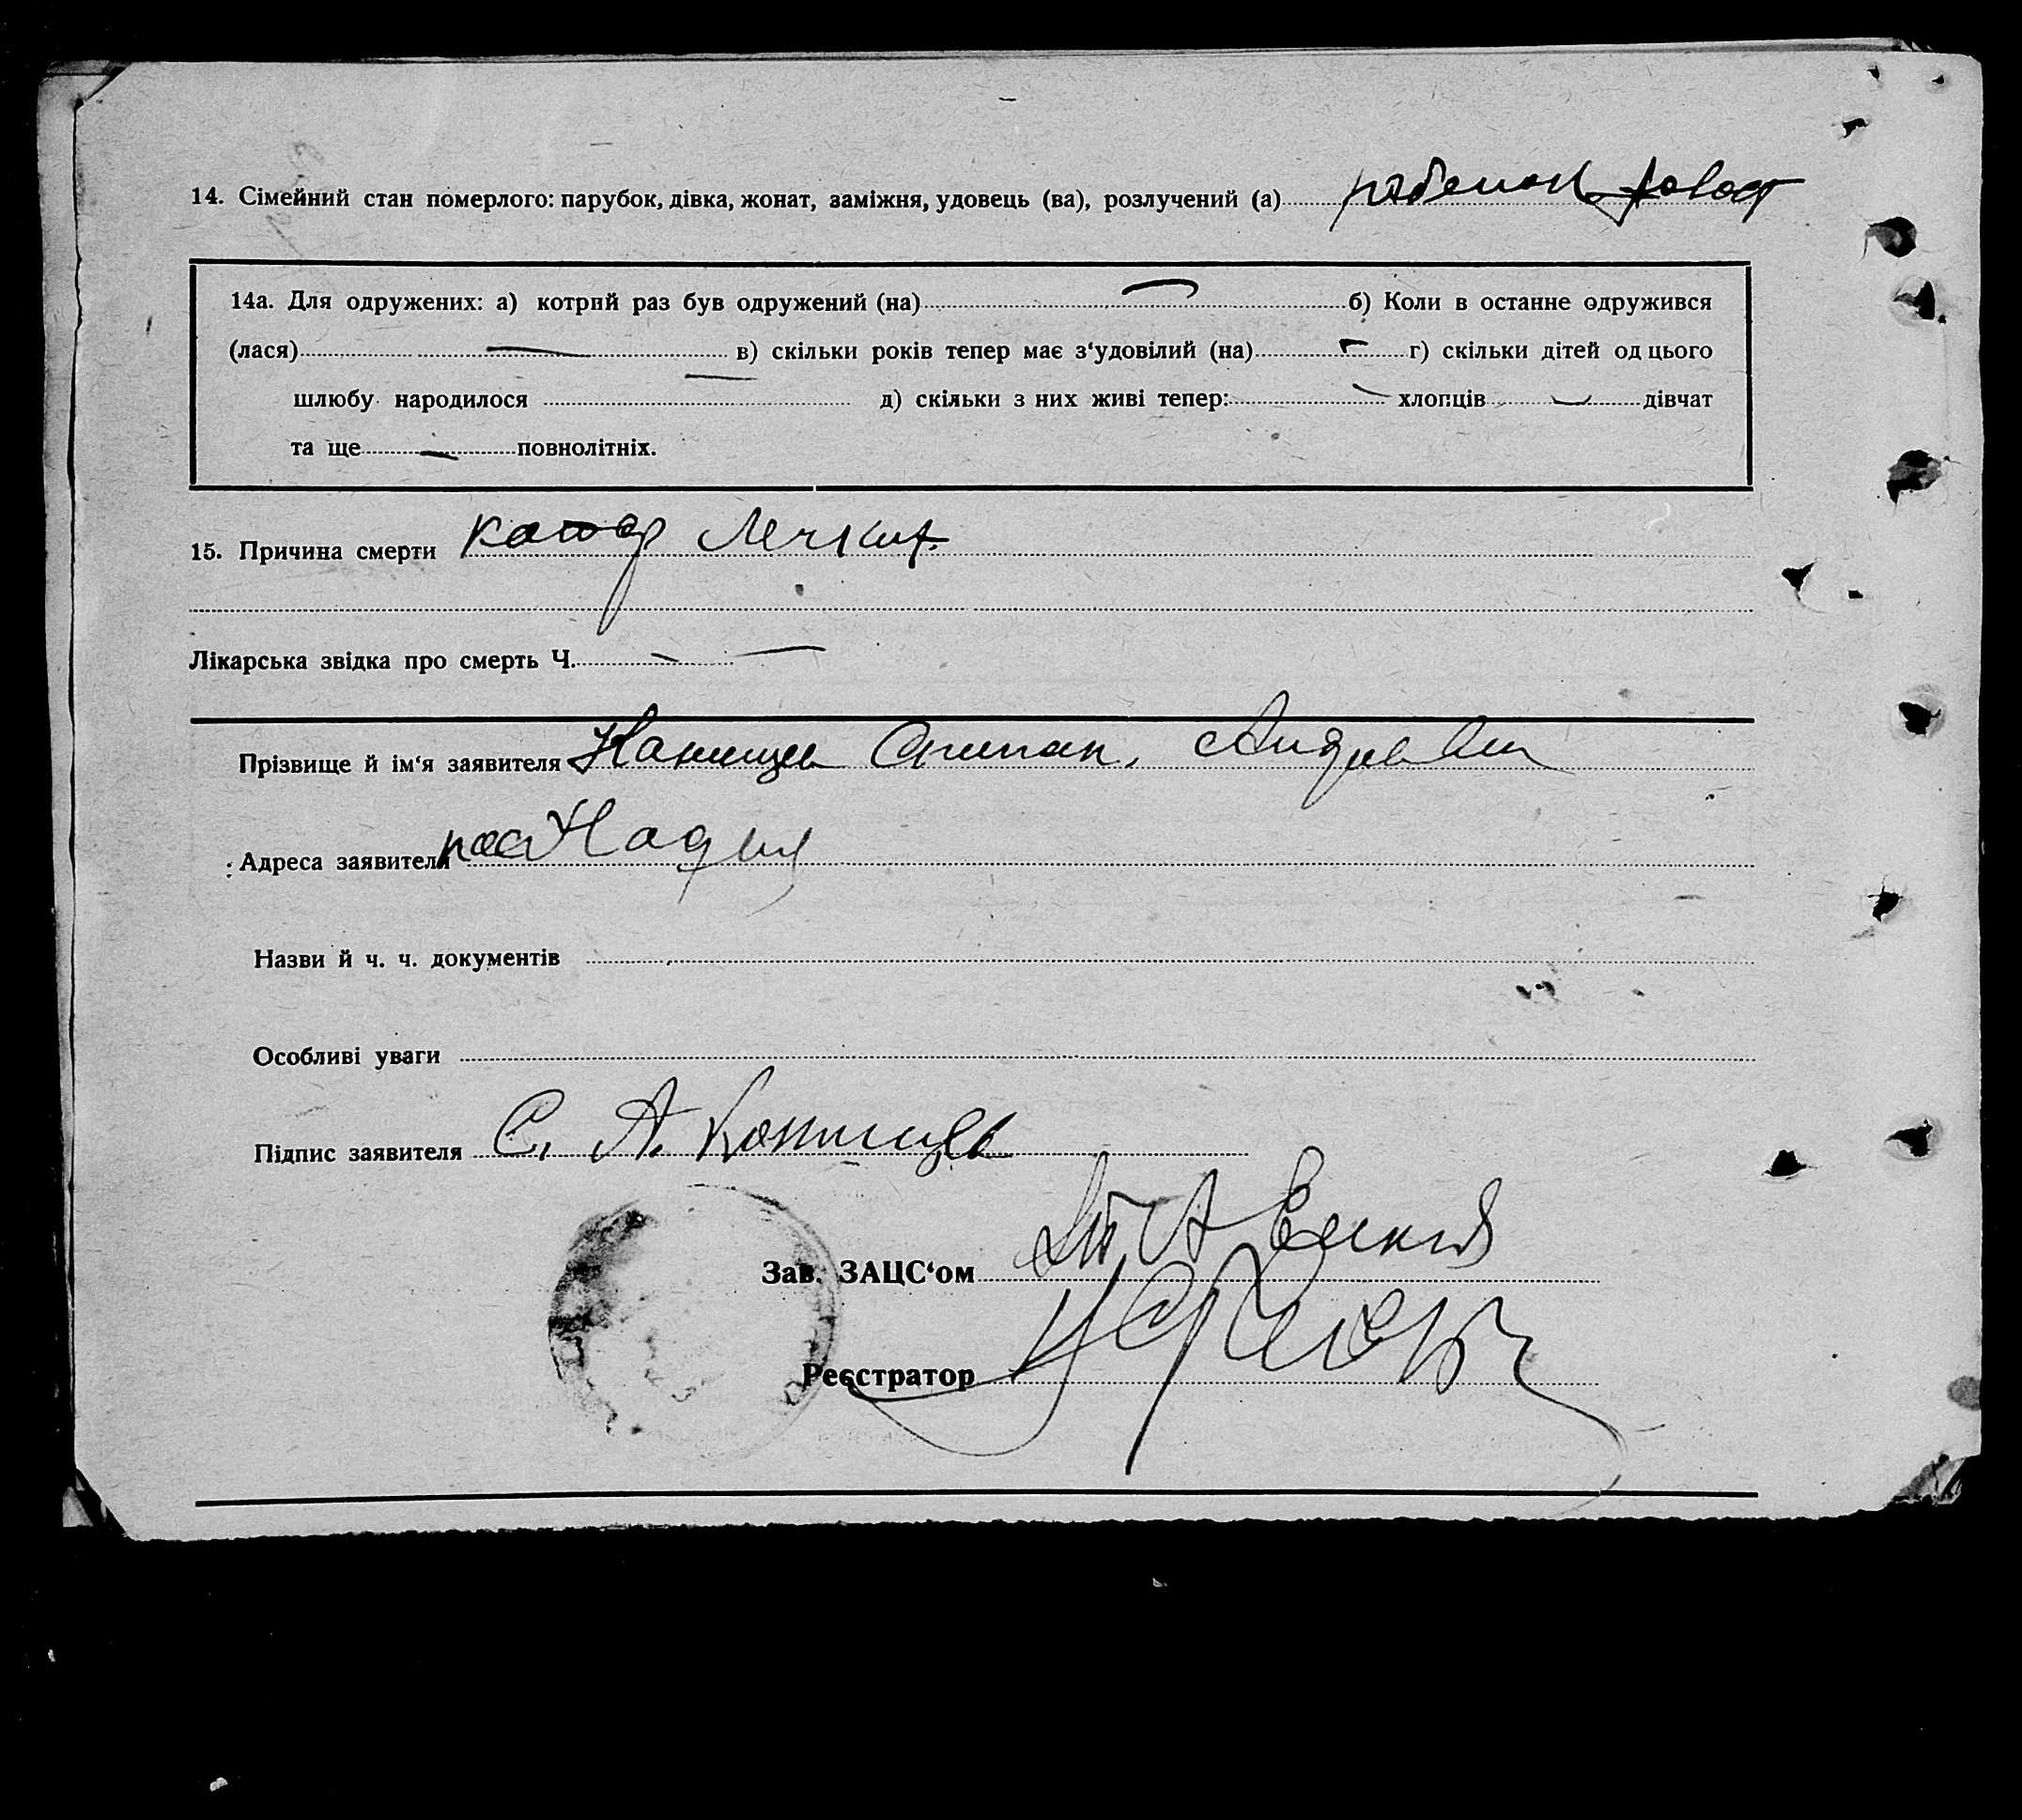 14. Сімейний стан померлого: парубок, дівка, жонат, заміжня, удовець (ва), розлучений (а)
14а. Для одружених: а) котрий раз був одружений (на) — б) Коли в останне одружився
(лася) — в) скільки років тепер має з‘удовілий (на) — г) скільки дітей од цього
шлюбу народилося — д) скільки з них живі тепер: — хлопців — дівчат
та ще — повнолітніх.
15. Причина смерти катар
Лікарська звідка про смерть Ч. — —
Прізвище й ім‘я заявителя Степан
Адреса заявителя пос
Назви й ч. ч. документів
Особливі уваги
Підпис заявителя С. А.
Зав. ЗАЦС‘ом
Реєстратор